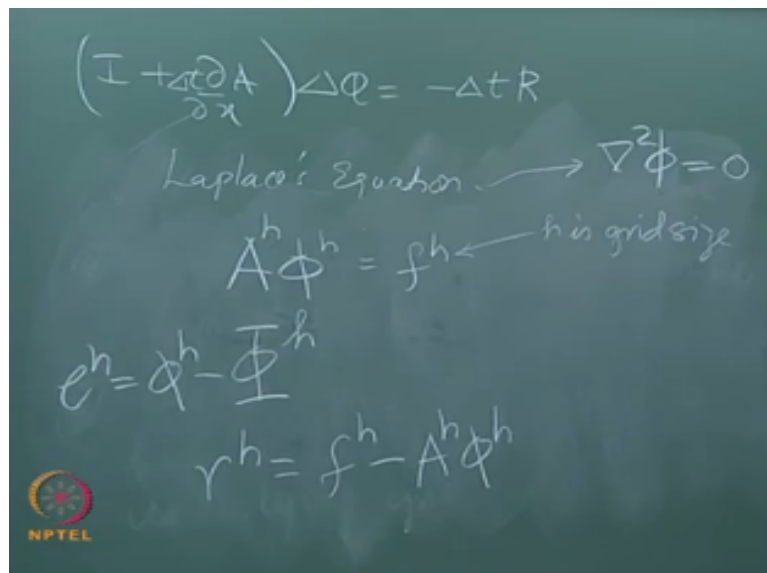 (I + Δt ∂/∂x A) ΔQ = -ΔtR
Laplace's Equation → ∇²ϕ = 0
Aʰϕʰ = fʰ ← h is grid size
eʰ = ϕʰ - Φʰ
rʰ = fʰ - Aʰϕʰ
NPTEL